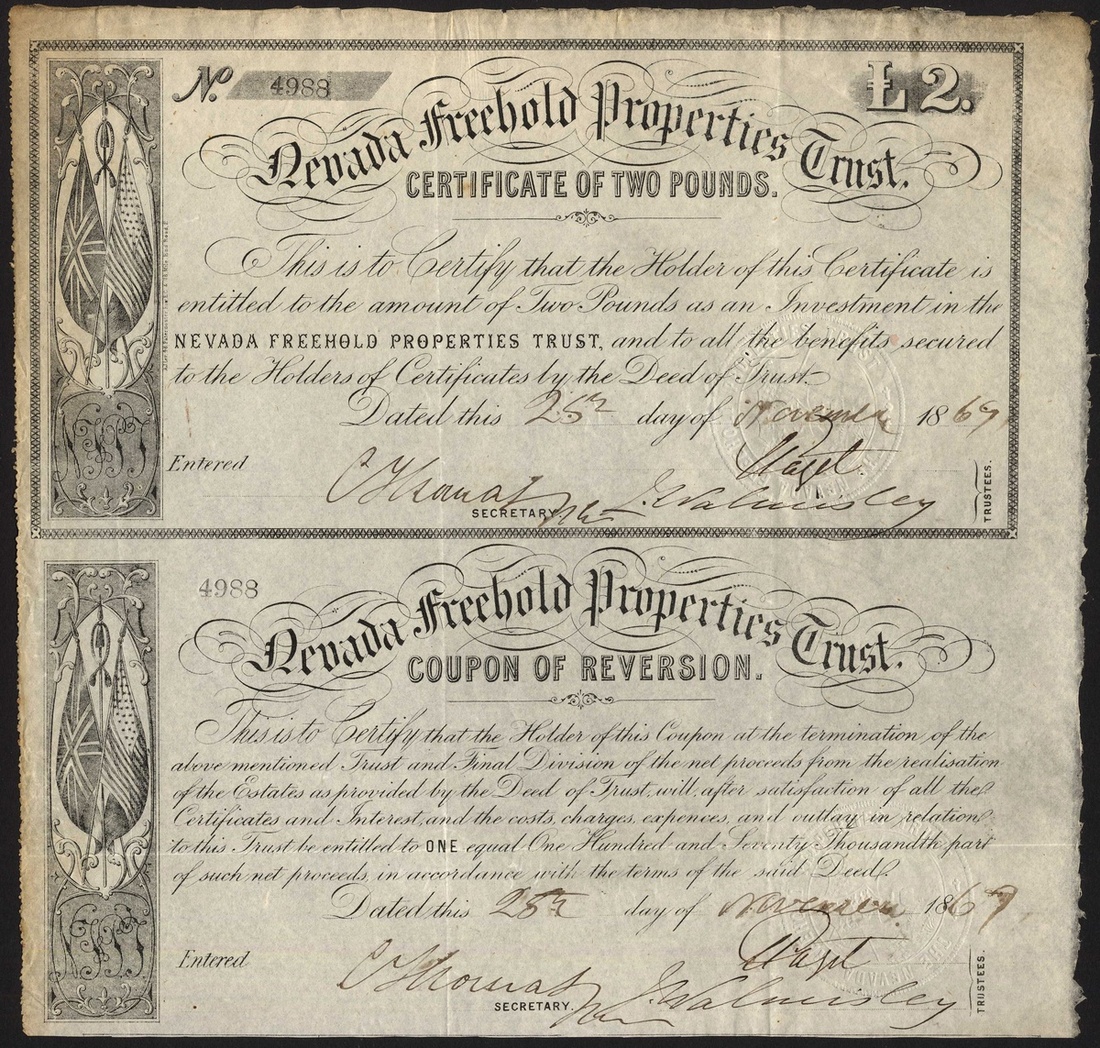 No. 4988
£2.
Nevada Freehold Properties Trust.
CERTIFICATE OF TWO POUNDS.
This is to Certify that the Holder of this Certificate is
entitled to the amount of Two Pounds as an Investment in the
NEVADA FREEHOLD PROPERTIES TRUST, and to all the benefits secured
to the Holders of Certificates by the Deed of Trust.
Dated this 25th day of November 1869
Entered
SECRETARY
J. Walmisley
TRUSTEES.
4988
Nevada Freehold Properties Trust.
COUPON OF REVERSION.
This is to Certify that the Holder of this Coupon at the termination of the
above mentioned Trust and Final Division of the net proceeds from the realisation
of the Estates as provided by the Deed of Trust, will, after satisfaction of all the
Certificates and Interest, and the costs, charges, expences, and outlay in relation
to this Trust be entitled to ONE equal One Hundred and Seventy Thousandth part
of such net proceeds, in accordance with the terms of the said Deed.
Dated this 25th day of November 1869
Entered
SECRETARY.
J. Walmisley
TRUSTEES.